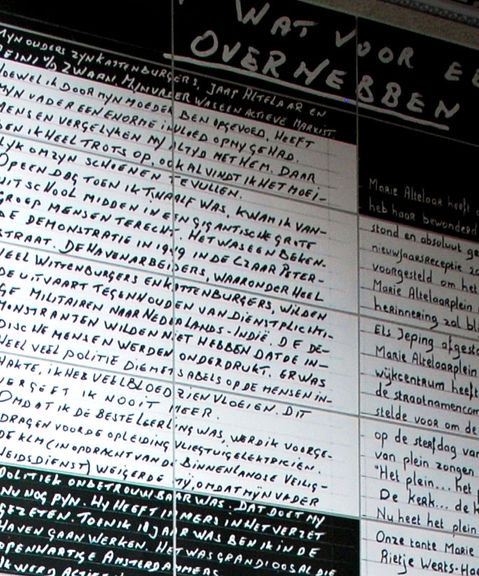 WAT VOOR EE
OVERHEBBEN
MYN OUDERS ZYN KATTENBURGERS, JAAP ALTELAAR EN
LEINTJE ZWARM. MYN VADER WAS EEN ACTIEVE MARXIST
HOEWEL IK DOOR MYN MOEDER BEN OPGEVOED, HEEFT
MYN VADER EEN ENORME INVLOED OP MY GEHAD.
MENSEN VERGELYKEN MY ALTYD MET HEM. DAAR
BEN IK HEEL TROTS OP, OOK AL VINDT IK HET MOEI-
LYK OM ZYN SCHOENEN TE VULLEN.
OP EEN DAG TOEN IK TWAALF WAS, KWAM IK VAN-
UIT SCHOOL MIDDEN IN EEN GIGANTISCHE GROTE
GROEP MENSEN TERECHT. HET WAS EEN BEKEN-
DE DEMONSTRATIE IN 1949 IN DE CZAAR PETER-
STRAAT. DE HAVENARBEIDERS, WAARONDER HEEL
VEEL WITTENBURGERS EN KATTENBURGERS, WILDEN
DE UITVAART TEGENHOUDEN VAN DIENSTPLICHTI-
GE MILITAIREN NAAR NEDERLANDS-INDIË. DE DE-
MONSTRANTEN WILDEN NIET HEBBEN DAT DE IN-
DISCHE MENSEN WERDEN ONDERDRUKT. ER WAS
HEEL VEEL POLITIE DIE MET SABELS OP DE MENSEN IN-
HAKTE, IK HEB VEEL BLOED ZIEN VLOEIEN. DIT
VERGEET IK NOOIT MEER.
OMDAT IK DE BESTE LEERLING WAS, WERD IK VOORGE-
DRAGEN VOOR DE OPLEIDING VLIEGTUIGELEKTRICIEN.
DE KLM (IN OPDRACHT VAN DE BINNENLANDSE VEILIG-
HEIDSDIENST) WEIGERDE MY, OMDAT MYN VADER
POLITIEK ONBETROUWBAAR WAS. DAT DOET MY
NU NOG PYN. HY HEEFT IMMERS IN HET VERZET
GEZETEN. TOEN IK 18 JAAR WAS BEN IK IN DE
HAVEN GAAN WERKEN. HET WAS GRANDIOOS AL DIE
OPENHARTIGE AMSTERDAMMERS.
IK WERD
Marie Altelaar heeft
heb haar bewonderd
stond en absoluut ge
nieuwjaarsreceptie
voorgesteld om het
Marie Altelaarplein
herinnering zal bl
Els Jeping afgest
Marie Altelaarplein
wijkcentrum heeft
de straatnamencom
stelde voor om de
op de sterfdag van
van plein zongen
"Het plein... het
De kerk... de k
Nu heet het plein
Onze tante Marie
Rietje Weats-Ha